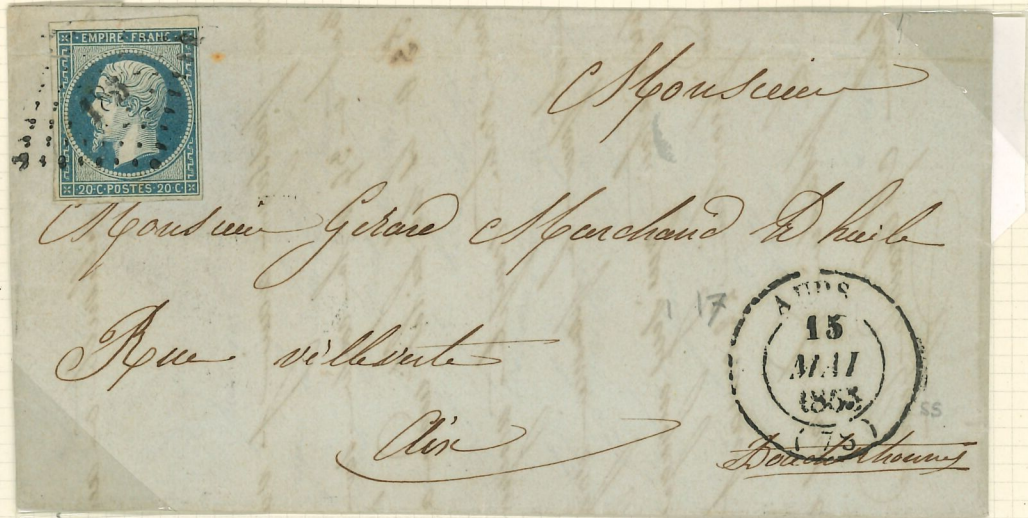 EMPIRE FRANC
20·C·POSTES 20·C
Monsieur
Monsieur Gérard Marchand D huile
Rue villeverte
Aix
AUPS
15
MAI
(78)
17
SS